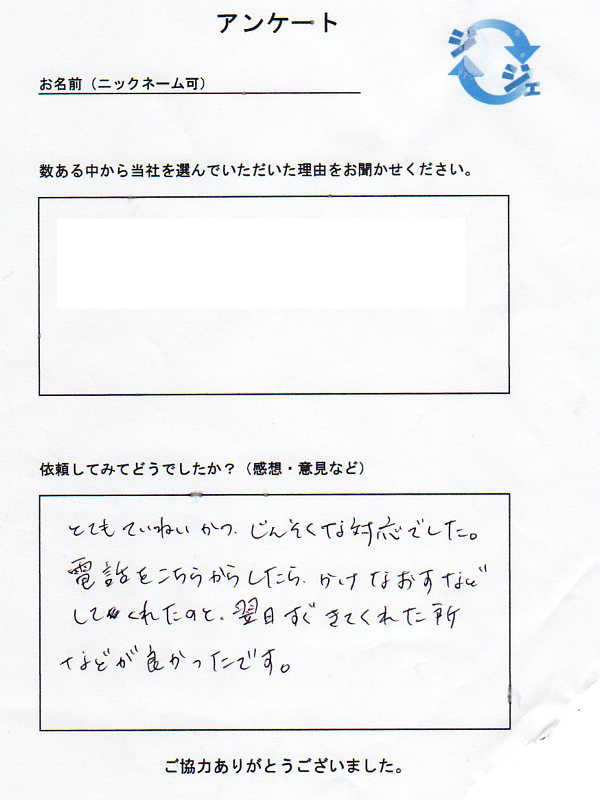 アンケート
ジ
ジェ
お名前（ニックネーム可）
数ある中から当社を選んでいただいた理由をお聞かせください。
依頼してみてどうでしたか？（感想・意見など）
とてもていねいかつ、じんそくな対応でした。
電話をこちらからしたら、かけなおすなど
してくれたのと、翌日すぐきてくれた所
などが良かったです。
ご協力ありがとうございました。